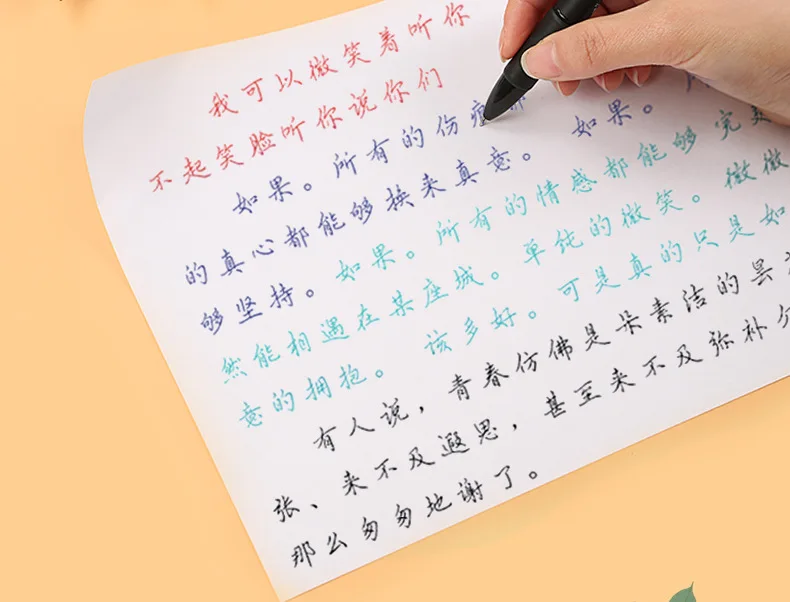 我可以微笑着听你
不起笑脸听你说你们
如果。所有的伤痕都 如果。
的真心都能够换来真意。
够坚持。如果。所有的情感都能够完美
然能相遇在某座城。单纯的微笑。微微
意的拥抱。 该多好。可是真的只是如
有人说，青春仿佛是朵素洁的昙
张、来不及遐思，甚至来不及弥补
那么匆匆地谢了。